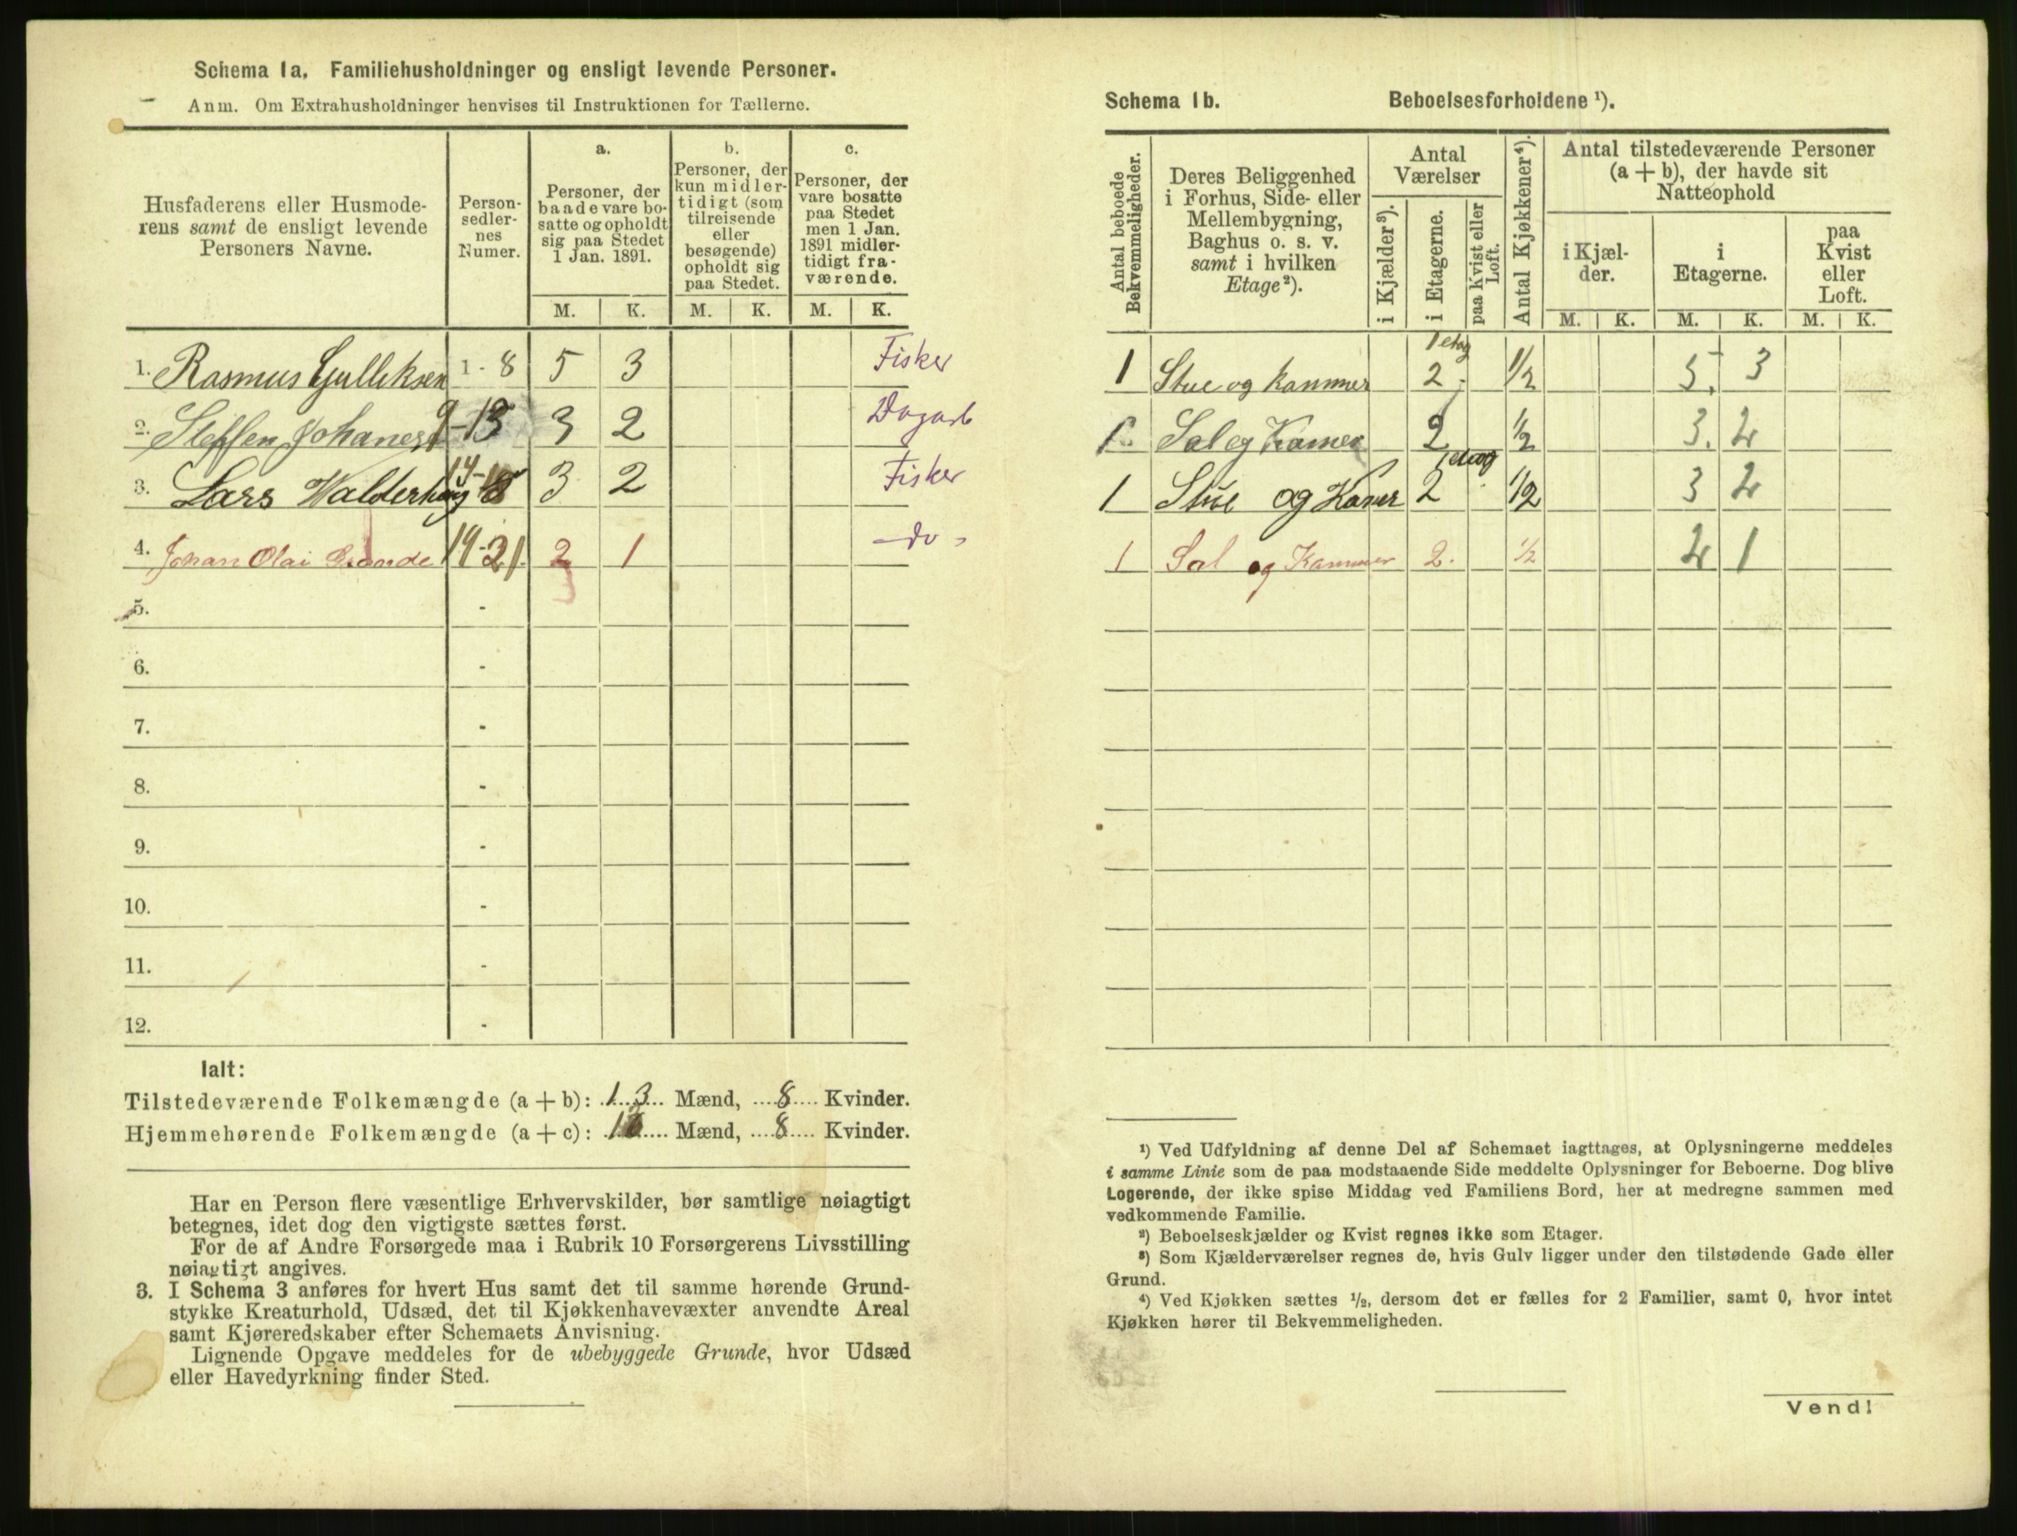 Schema 1a. Familiehusholdninger og ensligt levende Personer.
Anm. Om Extrahusholdninger henvises til Instruktionen for Tællerne.
Husfaderens eller Husmode-
rens samt de ensligt levende
Personers Navne.
Person-
sedler-
nes
Numer.
a.
Personer, der
baade vare bo-
satte og opholdt
sig paa Stedet
1 Jan. 1891.
b.
Personer, der
kun midler-
tidigt (som
tilreisende
eller
besøgende)
opholdt sig
paa Stedet.
c.
Personer, der
vare bosatte
paa Stedet
men 1 Jan.
1891 midler-
tidigt fra-
værende.
M. K. M. K. M. K.
1. Rasmus Gulliksen 1 - 8 5 3 Fisker
2. Steffen Johanesen 9-13 3 2 Dagarb
3. Lars Walderhaug 14-18 3 2 Fisker
4. Johan Olai Grande 19-21. 2 1 - do -
5. -
6. -
7. -
8. -
9. -
10. -
11. -
12. -
Ialt:
Tilstedeværende Folkemængde (a + b): 13 Mænd, 8 Kvinder.
Hjemmehørende Folkemængde (a + c): Mænd, 8 Kvinder.
Har en Person flere væsentlige Erhvervskilder, bør samtlige nøiagtigt
betegnes, idet dog den vigtigste sættes først.
For de af Andre Forsørgede maa i Rubrik 10 Forsørgerens Livsstilling
nøiagtigt angives.
3. I Schema 3 anføres for hvert Hus samt det til samme hørende Grund-
stykke Kreaturhold, Udsæd, det til Kjøkkenhavevæxter anvendte Areal
samt Kjøreredskaber efter Schemaets Anvisning.
Lignende Opgave meddeles for de ubebyggede Grunde, hvor Udsæd
eller Havedyrkning finder Sted.
Schema 1b. Beboelsesforholdene ¹).
Antal beboede
Bekvemmeligheder.
Deres Beliggenhed
i Forhus, Side- eller
Mellembygning,
Baghus o. s. v.
samt i hvilken
Etage²).
Antal
Værelser
i Kjælder³).
i Etagerne.
paa Kvist eller
Loft.
Antal Kjøkkener⁴).
Antal tilstedeværende Personer
(a + b), der havde sit
Natteophold
i Kjæl-
der.
i
Etagerne.
paa
Kvist
eller
Loft.
M. K. M. K. M. K.
1 Stue og kammer 1 etag 2 ½ 5. 3
1 Sal og Kamer 2 ½ 3. 2
1 Stue og Kamer 1 etag 2 ½ 3 2
1 Sal og Kammer 2. ½ 2 1
¹) Ved Udfyldning af denne Del af Schemaet iagttages, at Oplysningerne meddeles
i samme Linie som de paa modstaaende Side meddelte Oplysninger for Beboerne. Dog blive
Logerende, der ikke spise Middag ved Familiens Bord, her at medregne sammen med
vedkommende Familie.
²) Beboelseskjælder og Kvist regnes ikke som Etager.
³) Som Kjælderværelser regnes de, hvis Gulv ligger under den tilstødende Gade eller
Grund.
⁴) Ved Kjøkken sættes ½, dersom det er fælles for 2 Familier, samt 0, hvor intet
Kjøkken hører til Bekvemmeligheden.
Vend!